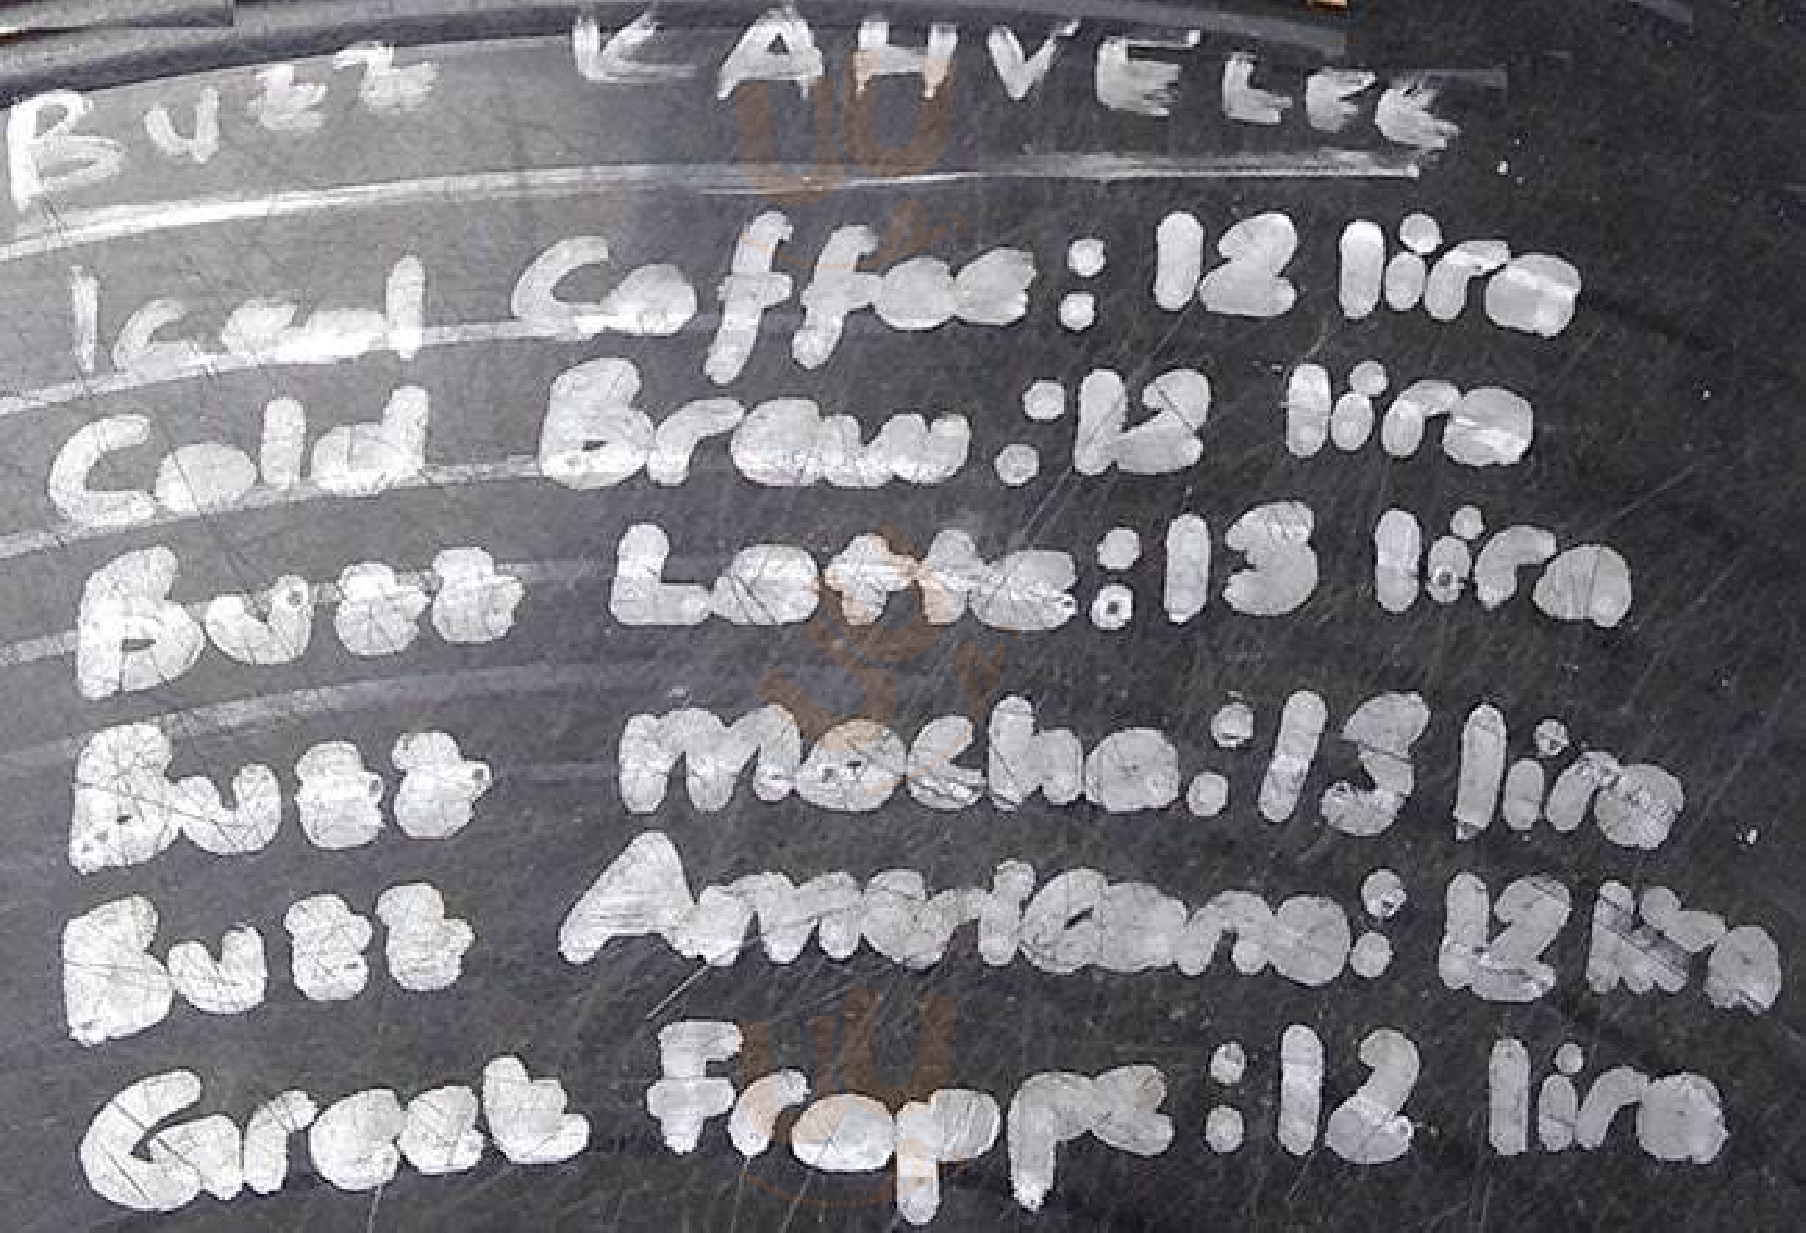 Buzz KAHVELER
Iced Coffee: 12 lira
Cold Brew: 12 lira
Buzz Latte: 13 lira
Buzz Mocha: 15 lira
Buzz Americano: 12 lira
Great Frappe: 12 lira